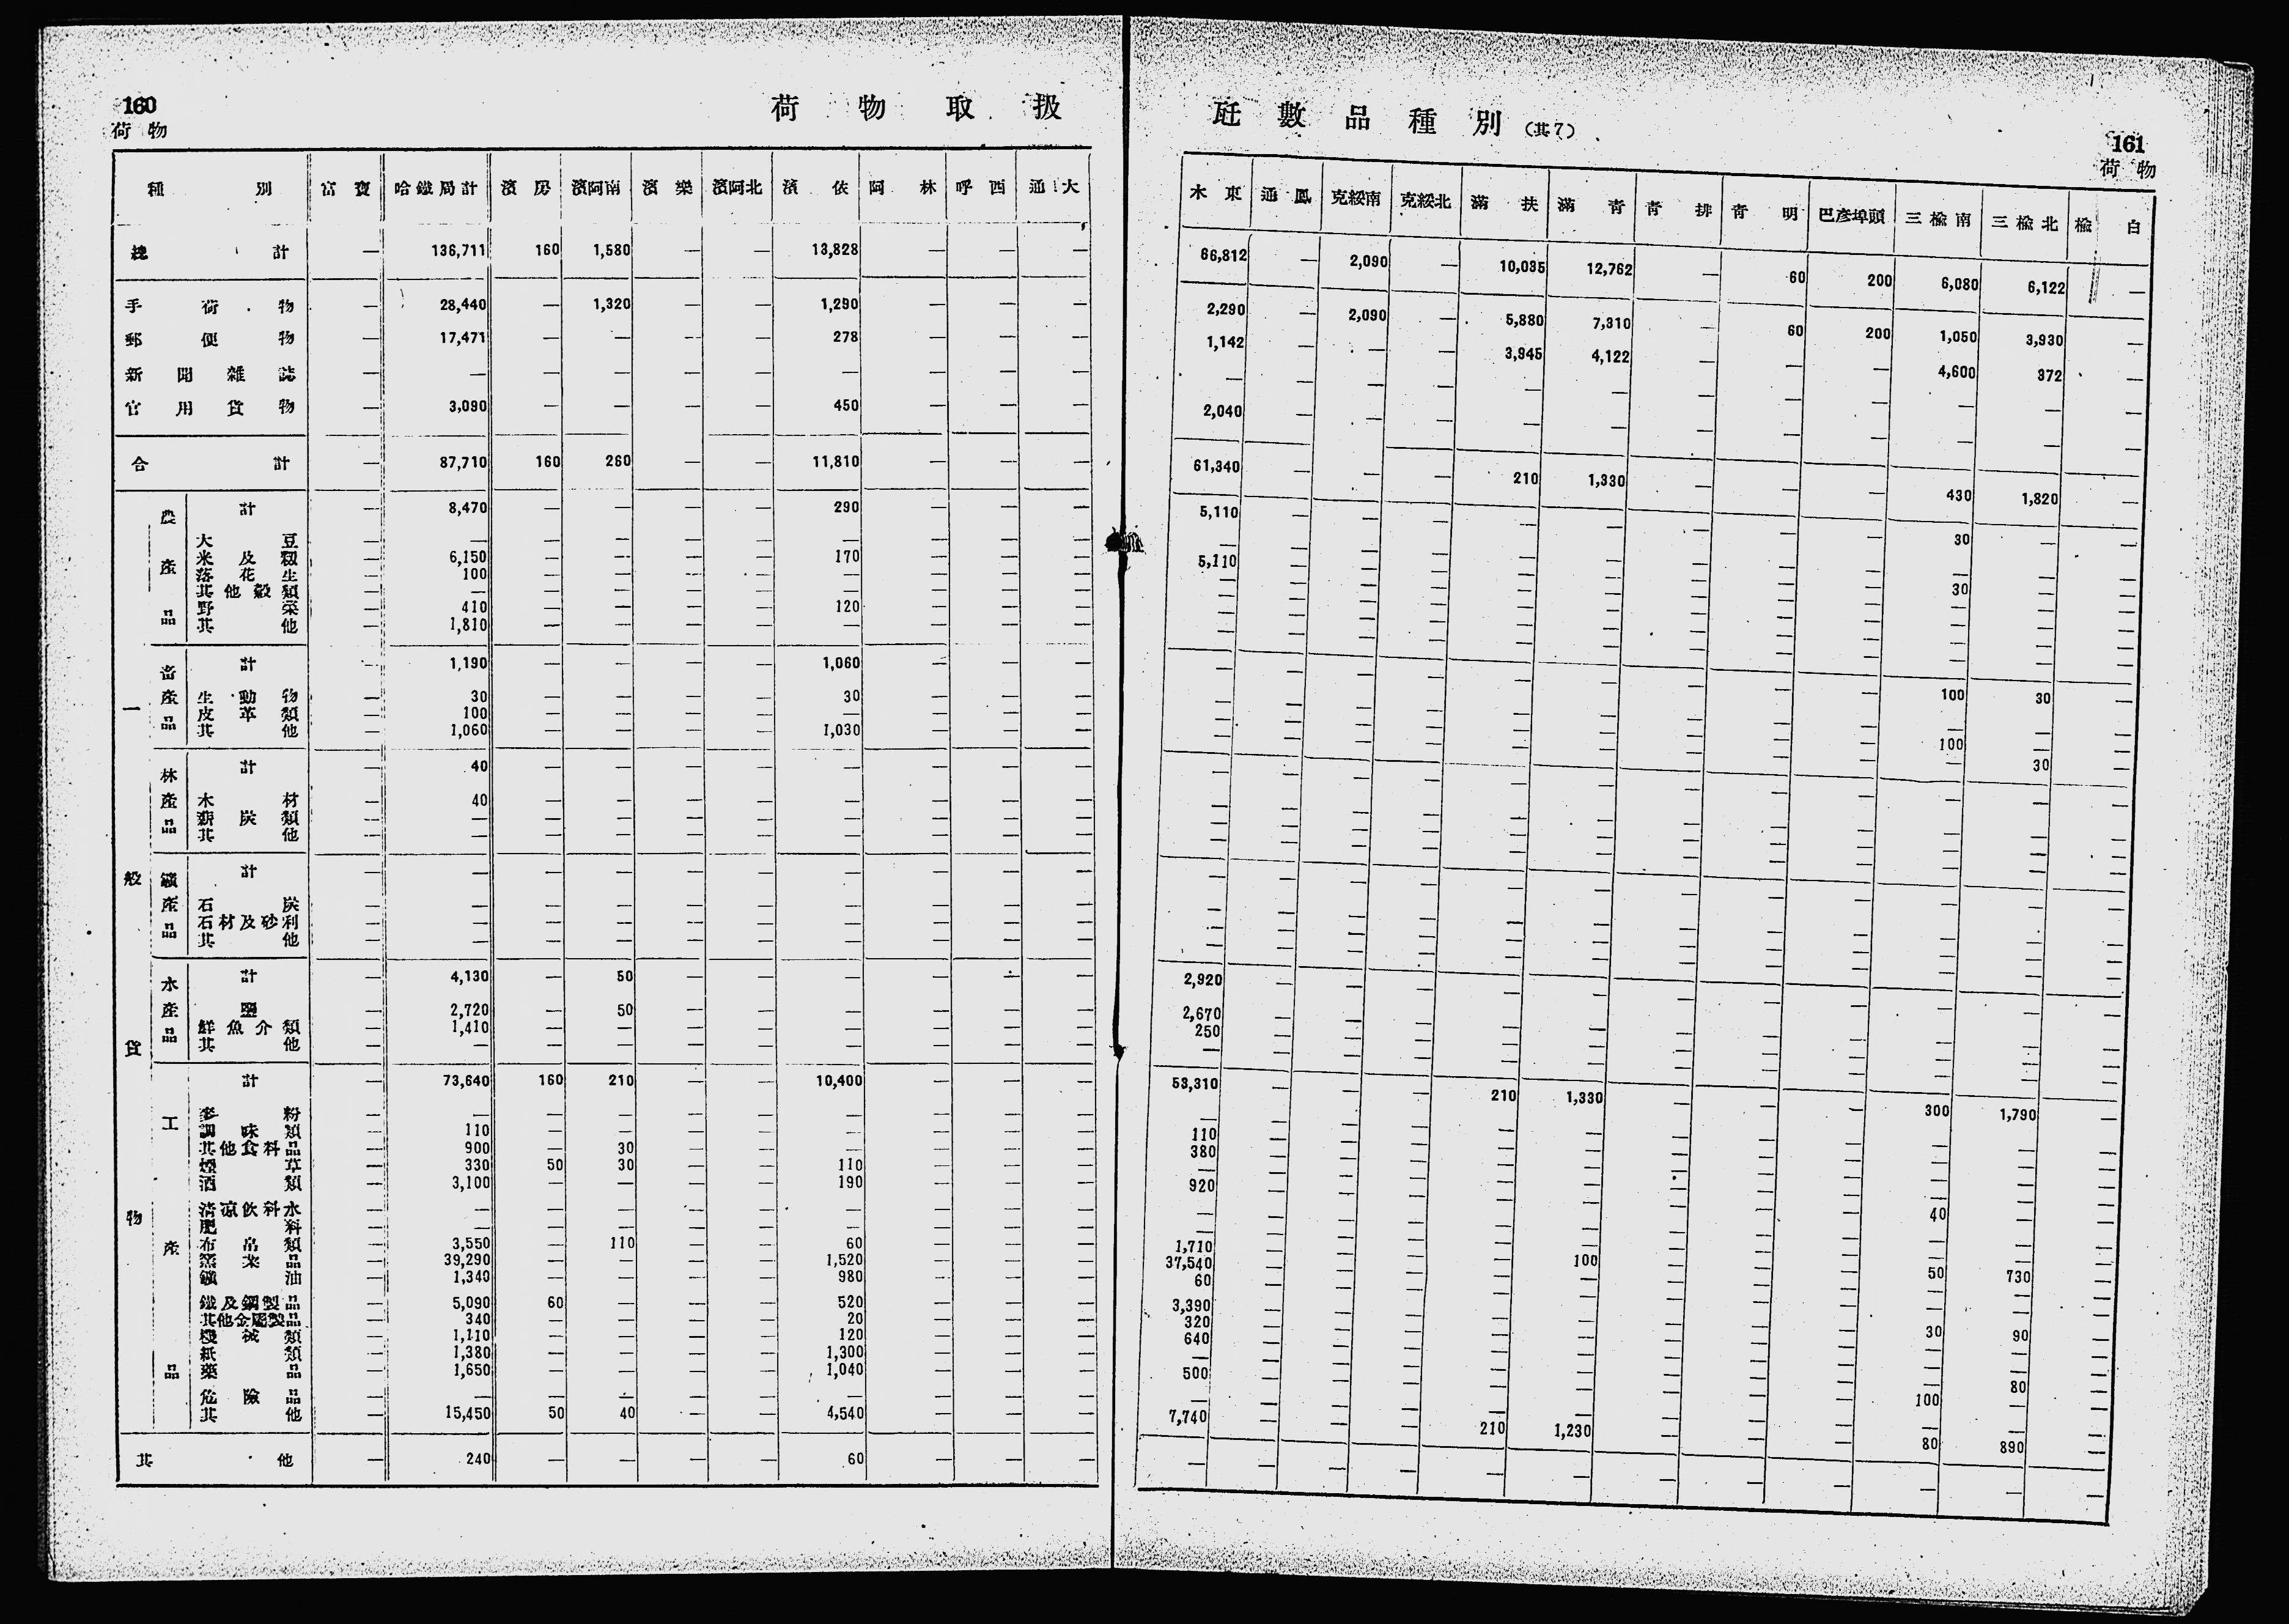 160
荷物
荷物取扱
種別 富寶 哈鐵局計 濱房 濱阿南 濱樂 濱阿北 濱依 阿林 呼西 通大
總計 — 136,711 160 1,580 — — 13,828 — — —
手荷物 — 28,440 — 1,320 — — 1,290 — — —
郵便物 — 17,471 — — — — 278 — — —
新聞雜誌 — — — — — — — — — —
官用貨物 — 3,090 — — — — 450 — — —
合計 — 87,710 160 260 — — 11,810 — — —
一般貨物
農產品
計 — 8,470 — — — — 290 — — —
大豆 — — — — — — — — — —
米及籾 — 6,150 — — — — 170 — — —
落花生 — 100 — — — — — — — —
其他穀類 — — — — — — — — — —
野菜 — 410 — — — — 120 — — —
其他 — 1,810 — — — — — — — —
畜產品
計 — 1,190 — — — — 1,060 — — —
生動物 — 30 — — — — 30 — — —
皮革類 — 100 — — — — — — — —
其他 — 1,060 — — — — 1,030 — — —
林產品
計 — 40 — — — — — — — —
木材 — 40 — — — — — — — —
薪炭類 — — — — — — — — — —
其他 — — — — — — — — — —
鑛產品
計 — — — — — — — — — —
石炭 — — — — — — — — — —
石材及砂利 — — — — — — — — — —
其他 — — — — — — — — — —
水產品
計 — 4,130 — 50 — — — — — —
鹽 — 2,720 — 50 — — — — — —
鮮魚介類 — 1,410 — — — — — — — —
其他 — — — — — — — — — —
工產品
計 — 73,640 160 210 — — 10,400 — — —
麥粉 — — — — — — — — — —
調味類 — 110 — — — — — — — —
其他食料品 — 900 — 30 — — — — — —
煙草 — 330 50 30 — — 110 — — —
酒類 — 3,100 — — — — 190 — — —
清凉飲料水 — — — — — — — — — —
肥料 — — — — — — — — — —
布帛類 — 3,550 — 110 — — 60 — — —
窯業品 — 39,290 — — — — 1,520 — — —
鑛油 — 1,340 — — — — 980 — — —
鐵及鋼製品 — 5,090 60 — — — 520 — — —
其他金屬製品 — 340 — — — — 20 — — —
機械類 — 1,110 — — — — 120 — — —
紙類 — 1,380 — — — — 1,300 — — —
藥品 — 1,650 — — — — 1,040 — — —
危險品 — — — — — — — — — —
其他 — 15,450 50 40 — — 4,540 — — —
其他 — 240 — — — — 60 — — —
瓩數品種別(其7)
161
荷物
木東 通鳳 克綏南 克綏北 滿扶 滿靑 靑排 靑明 巴彥埠頭 三楡南 三楡北 楡白
66,812 — 2,090 — 10,035 12,762 — 60 200 6,080 6,122 —
2,290 — 2,090 — 5,880 7,310 — 60 200 1,050 3,930 —
1,142 — — — 3,945 4,122 — — — 4,600 372 —
— — — — — — — — — — — —
2,040 — — — — — — — — — — —
61,340 — — — 210 1,330 — — — 430 1,820 —
5,110 — — — — — — — — 30 — —
— — — — — — — — — — — —
5,110 — — — — — — — — 30 — —
— — — — — — — — — — — —
— — — — — — — — — — — —
— — — — — — — — — — — —
— — — — — — — — — — — —
— — — — — — — — — 100 30 —
— — — — — — — — — — — —
— — — — — — — — — 100 — —
— — — — — — — — — — 30 —
— — — — — — — — — — — —
— — — — — — — — — — — —
— — — — — — — — — — — —
— — — — — — — — — — — —
— — — — — — — — — — — —
— — — — — — — — — — — —
— — — — — — — — — — — —
— — — — — — — — — — — —
2,920 — — — — — — — — — — —
2,670 — — — — — — — — — — —
250 — — — — — — — — — — —
— — — — — — — — — — — —
53,310 — — — 210 1,330 — — — 300 1,790 —
— — — — — — — — — — — —
110 — — — — — — — — — — —
380 — — — — — — — — — — —
— — — — — — — — — — — —
920 — — — — — — — — 40 — —
— — — — — — — — — — — —
— — — — — — — — — — — —
1,710 — — — — 100 — — — 50 730 —
37,540 — — — — — — — — — — —
60 — — — — — — — — — — —
3,390 — — — — — — — — 30 90 —
320 — — — — — — — — — — —
640 — — — — — — — — — — —
— — — — — — — — — — 80 —
500 — — — — — — — — 100 — —
— — — — — — — — — — — —
7,740 — — — 210 1,230 — — — 80 890 —
— — — — — — — — — — — —